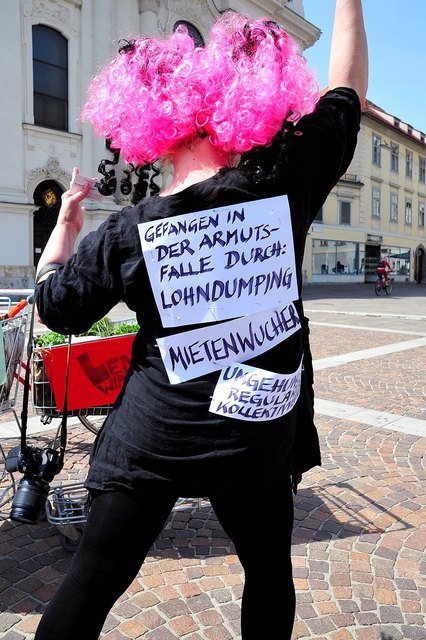 GEFANGEN IN
DER ARMUTS-
FALLE DURCH:
LOHNDUMPING
MIETENWUCHER
KOLLEKTIV